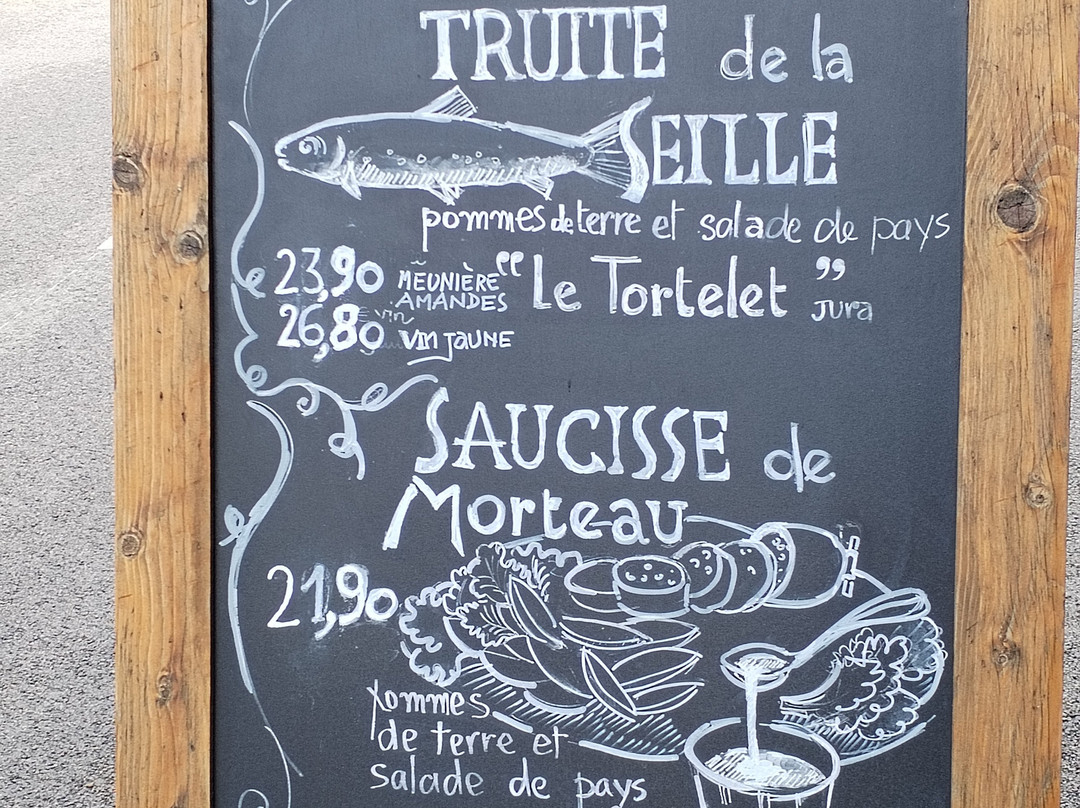 TRUITE de la
SEILLE
pommes de terre et salade de pays
23,90 MEUNIÈRE
AMANDES
"Le Tortelet" Jura
26,80 vin
vin JAUNE
SAUCISSE de
Morteau
21,90
pommes
de terre et
salade de pays